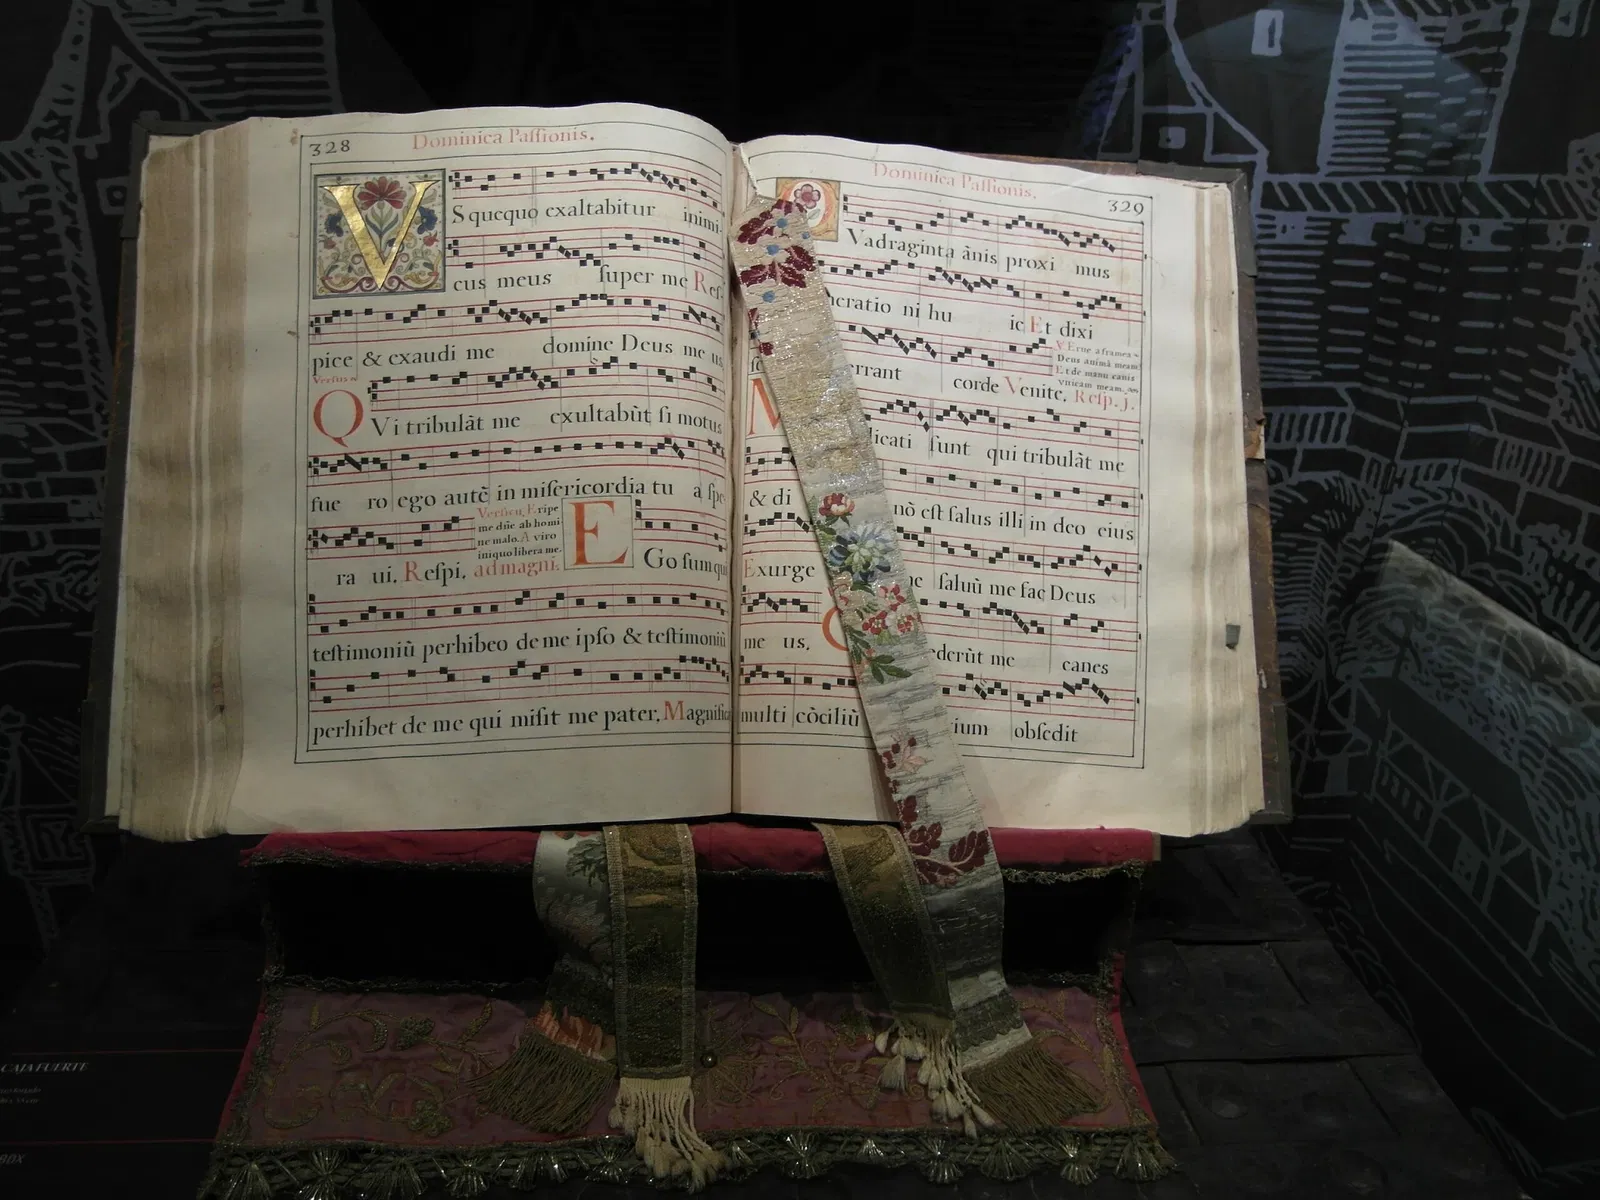 328
Dominica Paſſionis.
V
S quequo exaltabitur inimi-
cus meus ſuper me Reſ-
pice & exaudi me domine Deus me us
Verſus
Q Vi tribulāt me exultabūt ſi motus
fue ro ego autē in miſericordia tu a ſpe
Verſicu. Eripe
me dn̄e ab homi
ne malo. A viro
iniquo libera me.
ra ui. Reſpi. ad magni. E Go ſum qui
teſtimoniū perhibeo de me ipſo & teſtimoniū
perhibet de me qui miſit me pater. Magnific
Dominica Paſſionis.
329
Vadraginta ānis proxi mus
neratio ni hu ic Et dixi
V Erue a framea
Deus animā meam
Et de manu canis
vnicam meam.
errant corde Venite. Reſp. j.
M licati ſunt qui tribulāt me
& di nō eſt ſalus illi in deo eius
Exurge ne ſaluū me fac Deus
me us. ederūt me canes
multi cōciliū ium obſedit
CAJA FUERTE
BOX